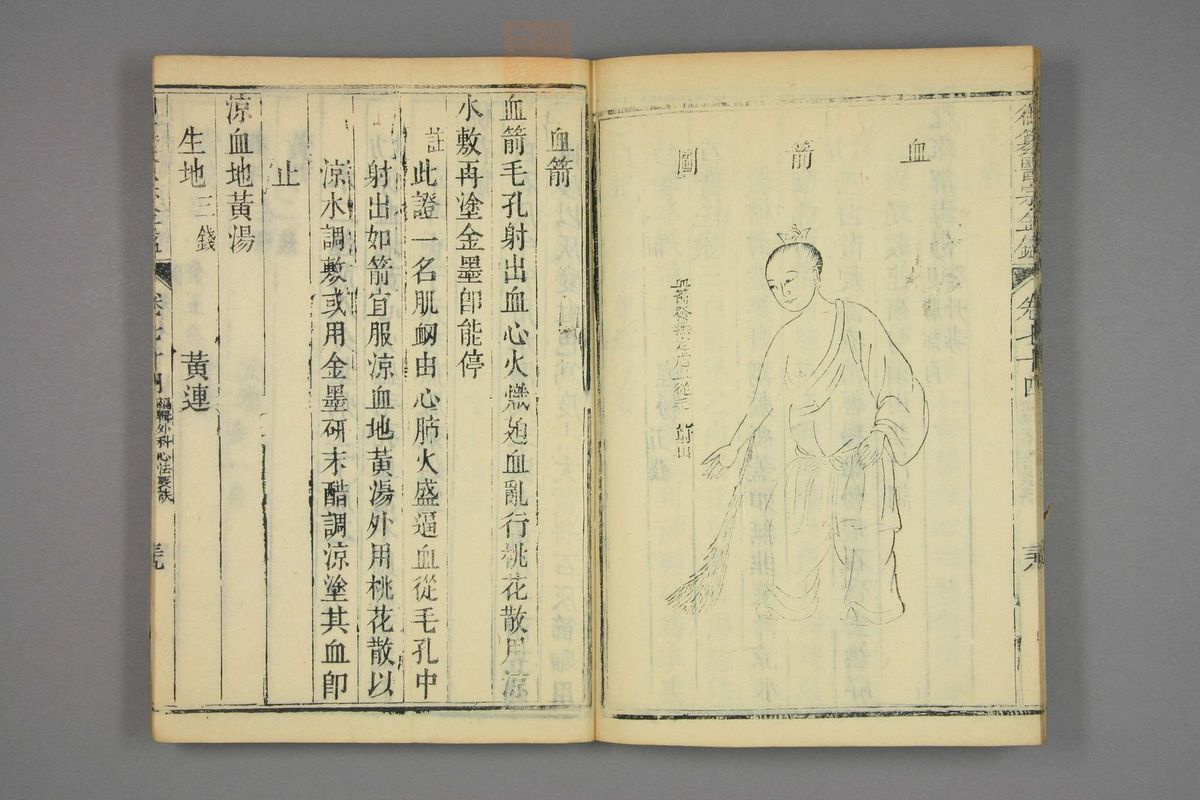 御纂醫宗金鑑
卷七十四
血箭圖
血箭發無定處從毛孔射出
血箭
血箭毛孔射出血心火熾廹血亂行桃花散用涼
水敷再塗金墨卽能停
註此證一名肌衂由心肺火盛逼血從毛孔中
射出如箭宜服涼血地黃湯外用桃花散以
涼水調敷或用金墨研末醋調涼塗其血卽
止
涼血地黃湯
生地三錢 黃連
卷七十四 編輯外科心法要訣